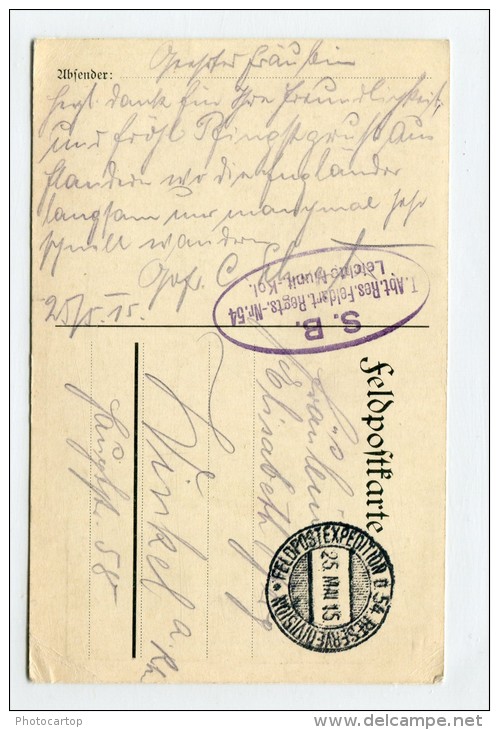 Absender: Geehrtes Fräulein
herzl. dank für Ihre Freundlichkeit
und fröhl Pfingstgruß aus
Flandern wo die Engländer
langsam und manchmal sehr
schnell wandern
Gefr. C.
25/5. 15.
S. B.
I. Abt. Res. Feldart. Regts.-Nr. 54
Leichte Munit.-Kol.
Feldpostkarte
Fräulein
Elisabeth
Winkel a. Rh
Hauptstr. 58
FELDPOSTEXPEDITION D. 54. RESERVEDIVISION *
25. MAI 15
Photocartop
delcampe.net